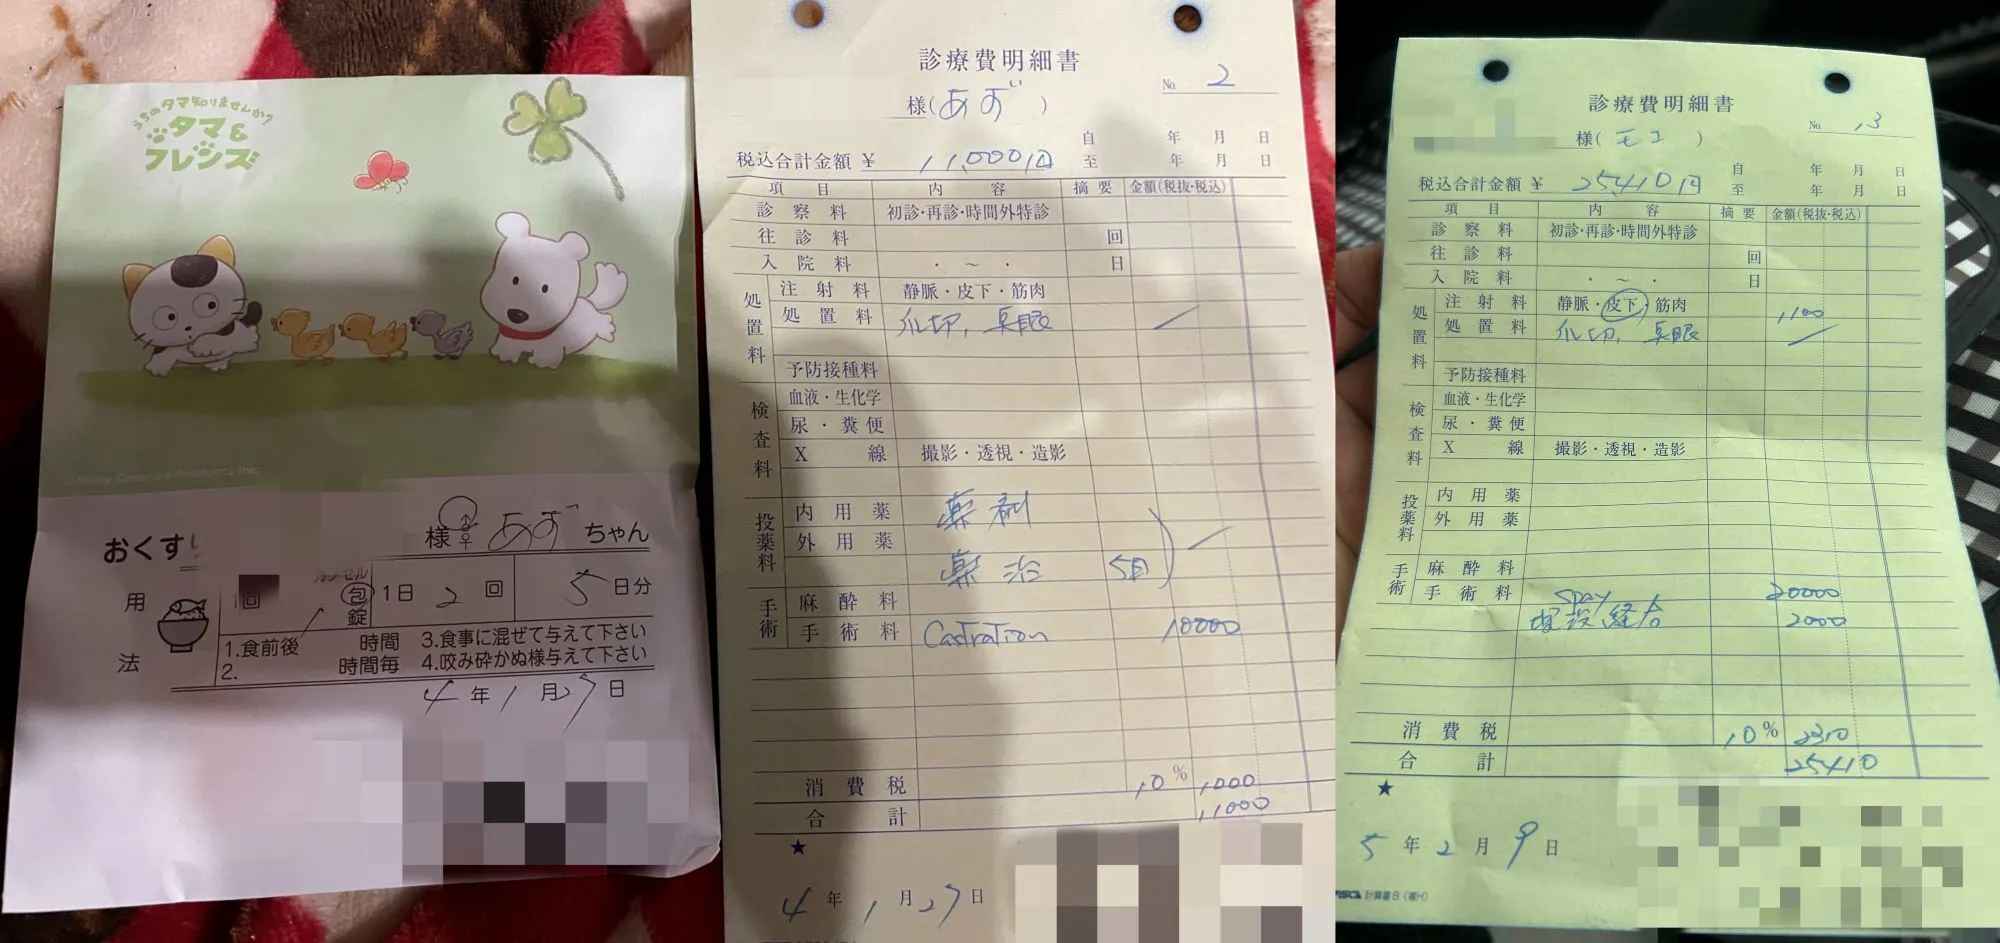 うちのタマ知りませんか?
タマ&
フレンズ
© Sony Creative Products Inc.
おくすり
様 ♂♀ あず ちゃん
用法
カプセル
1回 包 1日 2 回 5 日分
錠
1.食前後 時間 3.食事に混ぜて与えて下さい
2. 時間毎 4.咬み砕かぬ様与えて下さい
4 年 1 月 27 日
診療費明細書
№ 2
様(あず)
自 年 月 日
税込合計金額 ¥ 11,000円 至 年 月 日
項目 内容 摘要 金額(税抜・税込)
診察料 初診・再診・時間外特診
往診料 回
入院料 ・ ~ ・ 日
処置料
注射料 静脈・皮下・筋肉
処置料 爪切,
予防接種料
検査料
血液・生化学
尿・糞便
X線 撮影・透視・造影
投薬料
内用薬 薬剤
外用薬
薬治 5日
手術
麻酔料
手術料 Castration 10000
消費税 10% 1000
合計 11000
★
4 年 1 月 27 日
診療費明細書
№ 13
様(モコ)
自 年 月 日
税込合計金額 ¥ 25,410円 至 年 月 日
項目 内容 摘要 金額(税抜・税込)
診察料 初診・再診・時間外特診
往診料 回
入院料 ・ ~ ・ 日
処置料
注射料 静脈・皮下・筋肉 1100
処置料 爪切,
予防接種料
検査料
血液・生化学
尿・糞便
X線 撮影・透視・造影
投薬料
内用薬
外用薬
手術
麻酔料
手術料 Spay 20000
埋没縫合 2000
消費税 10% 2310
合計 25410
★
5 年 2 月 9 日
計算書B(複H)